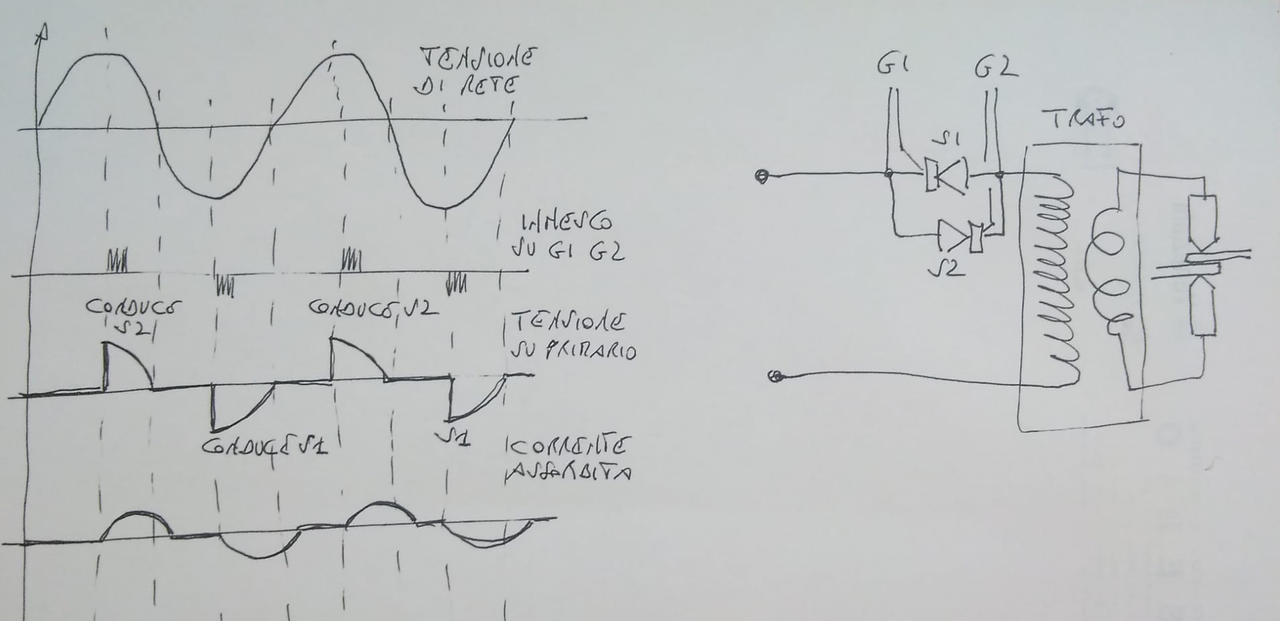 TENSIONE
DI RETE
INNESCO
SU G1 G2
CONDUCE
S2
CONDUCE S2
TENSIONE
SU PRIMARIO
CONDUCE S1
S1
CORRENTE
ASSORBITA
G1
G2
TRAFO
S1
S2